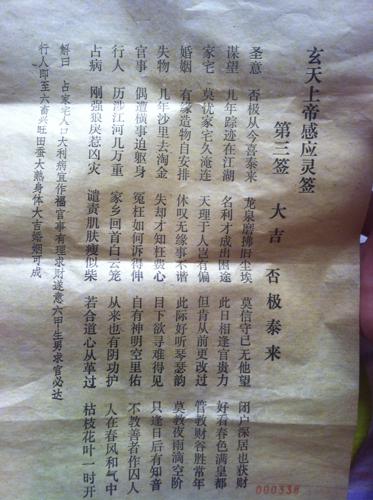 玄天上帝感应灵签
第三签 大吉 否极泰来
圣意 否极从今喜泰来 龙泉磨拂旧尘埃 莫信守已无他望 闭户深居也获财
谋望 几年踪迹在江湖 名利才成出困途 此日相逢官贵力 好看春色满皇都
家宅 莫忧家宅久淹连 天理于人岂有偏 但肯从前更改过 管教财谷胜常年
婚姻 有缘造物自安排 休叹无缘事不谐 此际好听琴瑟韵 莫教夜雨滴空阶
失物 几年沙里去淘金 失却才知枉费心 目下欲寻难得见 只逢日后有知音
官事 偶遭横事迫躯身 冤枉如何诉得伸 自有神明空里佑 不教善者作囚人
行人 历涉江河几万重 家乡回首白云笼 从来也有阴功护 人在春风和气中
占病 刚强狼戾惹凶火 谴责肌肤瘦似柴 若合道心从革过 枯枝花叶一时开
解曰 占家宅人口大利病宜作福官事有理求财遂意六甲生男求官必达
行人即至六畜兴旺田蚕大熟身体大吉婚姻可成
000338